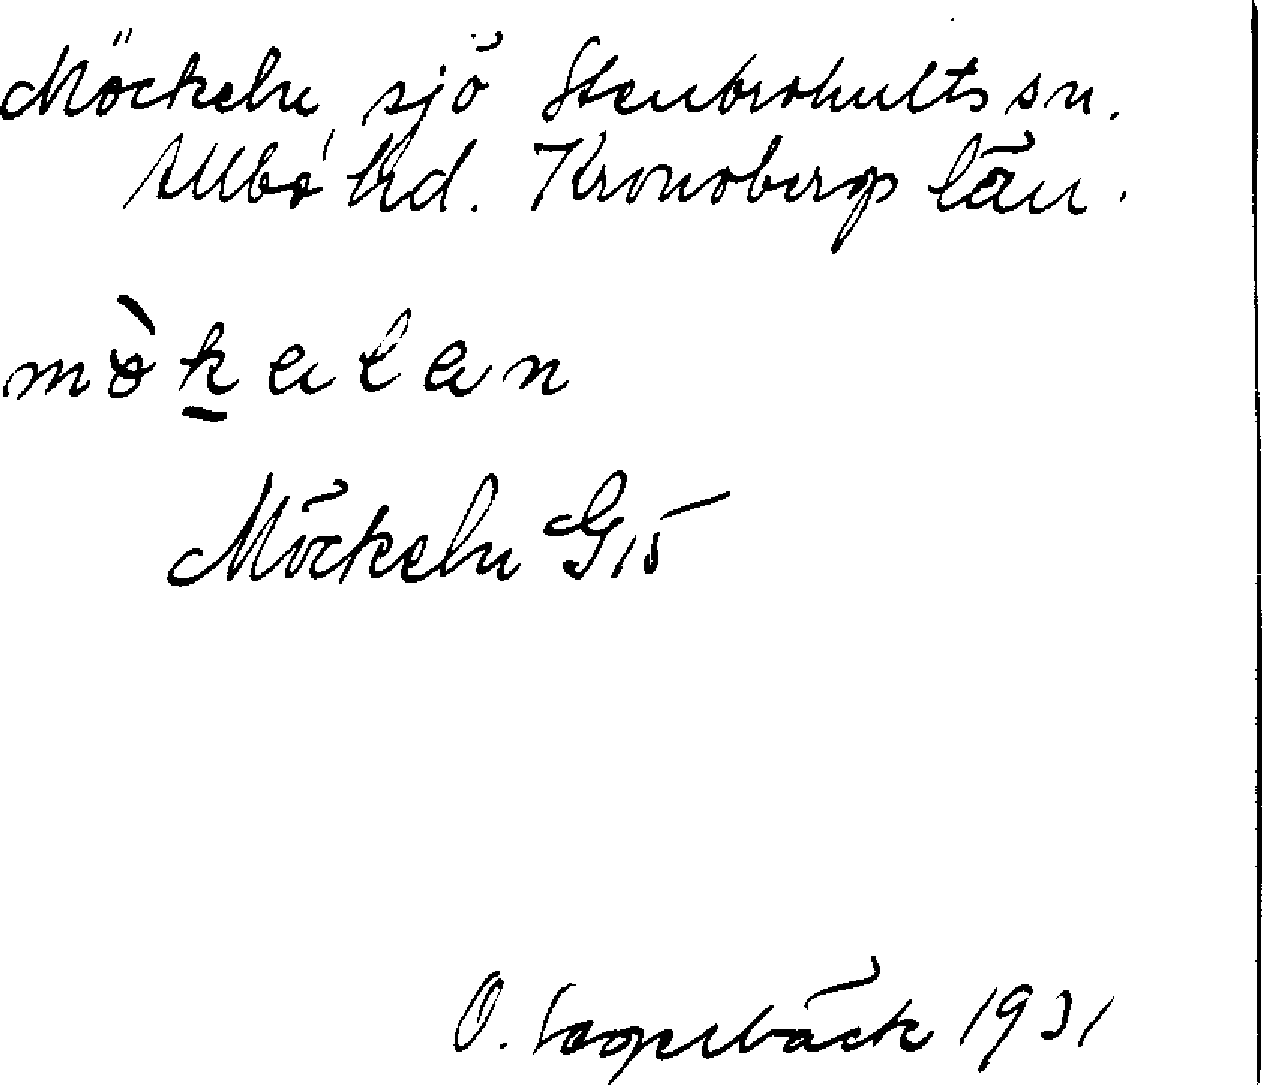 Möckeln, sjö Stenbrohults sn.
Allbo hd. Kronobergs län.
mòkalan
Möckeln G15
O. Lagerbäck 1931